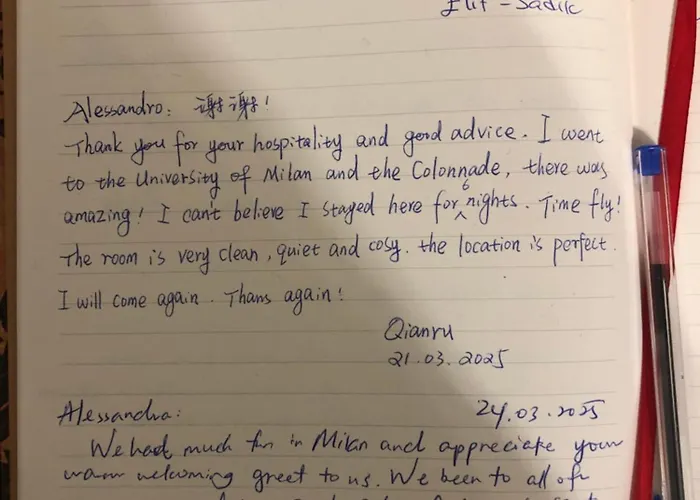 Elif - Sadik
Alessandro: 谢谢!
Thank you for your hospitality and good advice. I went
to the University of Milan and the Colonnade, there was
amazing! I can't believe I stayed here for 6 nights. Time fly!
The room is very clean, quiet and cosy. the location is perfect.
I will come again. Thans again!
Qianru
21.03.2025
Alessandra: 24.03.2025
We had much fun in Milan and appreciate your
warm welcoming greet to us. We been to all of